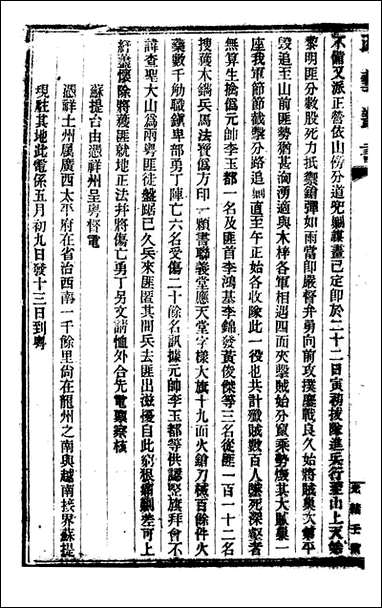 不備又派正營依山傍分道兜勦籌畫已定卽於二十二日寅刻拔隊進兵行至山上天始
黎明匪分數股死力抵禦鎗彈如雨當卽嚴督弁勇向前攻撲鏖戰良久始將賊巢次第平
毀追至山前匪勢猶甚洶湧適與木梓各軍相遇四面夾擊賊始分竄乘勢燬其大賊巢一
座我軍節節截擊分路追勦直至午正始各收隊此一役也共計殲賊數百人墜死深壑者
無算生擒僞元帥李玉都一名及匪首李鴻基李錦發黃俊傑等三名從匪一百一十二名
搜獲木鐫兵馬法寶僞方印一顆書聯義堂應天堂字樣大旗十九面火鎗刀械百餘件火
藥數千觔職鎮卑部勇丁陣亡六名受傷二十餘名訊據元帥李玉都等供認竪旗拜會不
諱查聖大山爲兩粵匪徒盤踞已久兵來匪匿其間兵去匪出滋擾自此剿根株剗差可上
紓藎懷除將獲匪就地正法并將傷亡勇丁另文請恤外合先電稟察核
蘇提台由憑祥州呈粵督電
憑祥土州屬廣西太平府在省治西南一千餘里尙在龍州之南與越南接界蘇提
現駐其地此電係五月初九日發十三日到粵